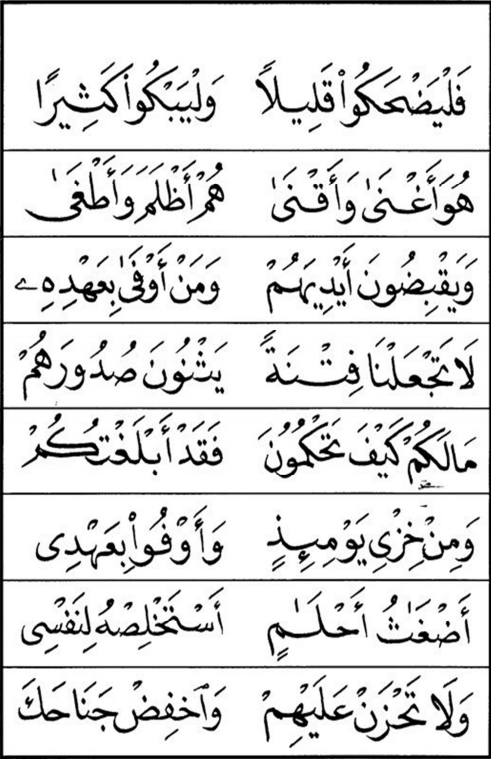 فَلْيَضْحَكُوا۟ قَلِيلًا وَلْيَبْكُوا۟ كَثِيرًا
هُوَ أَغْنَىٰ وَأَقْنَىٰ هُمْ أَظْلَمَ وَأَطْغَىٰ
وَيَقْبِضُونَ أَيْدِيَهُمْ وَمَنْ أَوْفَىٰ بِعَهْدِهِۦ
لَا تَجْعَلْنَا فِتْنَةً يَثْنُونَ صُدُورَهُمْ
مَا لَكُمْ كَيْفَ تَحْكُمُونَ فَقَدْ أَبْلَغْتُكُمْ
وَمِنْ خِزْىِ يَوْمِئِذٍ وَأَوْفُوا۟ بِعَهْدِى
أَضْغَٰثُ أَحْلَٰمٍ أَسْتَخْلِصْهُ لِنَفْسِى
وَلَا تَحْزَنْ عَلَيْهِمْ وَٱخْفِضْ جَنَاحَكَ